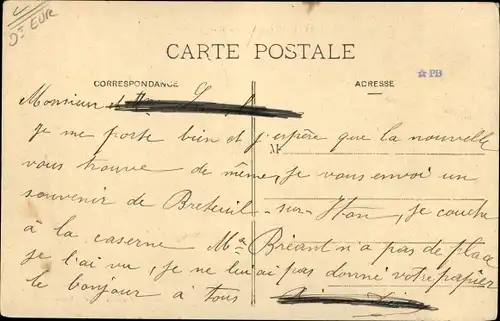 Dᵗ EUR
CARTE POSTALE
CORRESPONDANCE
ADRESSE
PB
M
Monsieur
Je me porte bien et j'espère que la nouvelle
vous trouve de même, je vous envoi un
souvenir de Breteuil-sur-Iton, je couche
à la caserne Mᵐᵉ Bréant n'a pas de place
je l'ai vu, je ne lui ai pas donné votre papier
le bonjour à tous